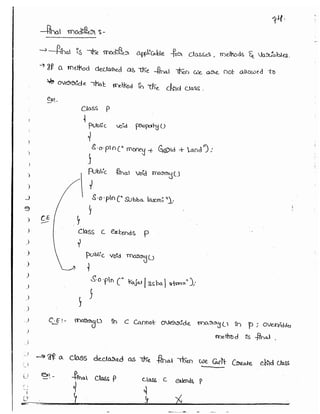 74.
final modifier :-
→ final is the modifier applicable for classes, methods & variables.
→ If a method declared as the final then we are not allowed to
override that method in the child class.
Ex:-
class P
{
public void property()
{
S.o.pln("money + Gold + Land");
}
public final void marry()
{
S.o.pln("Subba laxmi");
}
C.E
}
class C extends P
{
public void marry()
{
S.o.pln("Kajal | Isha | ");
}
}
C.E :- marry() in C cannot override marry() in P ; overridden
method is final.
→ If a class declared as the final then we can't create child class
Ex:- final class P class C extends P
{ {
} } X